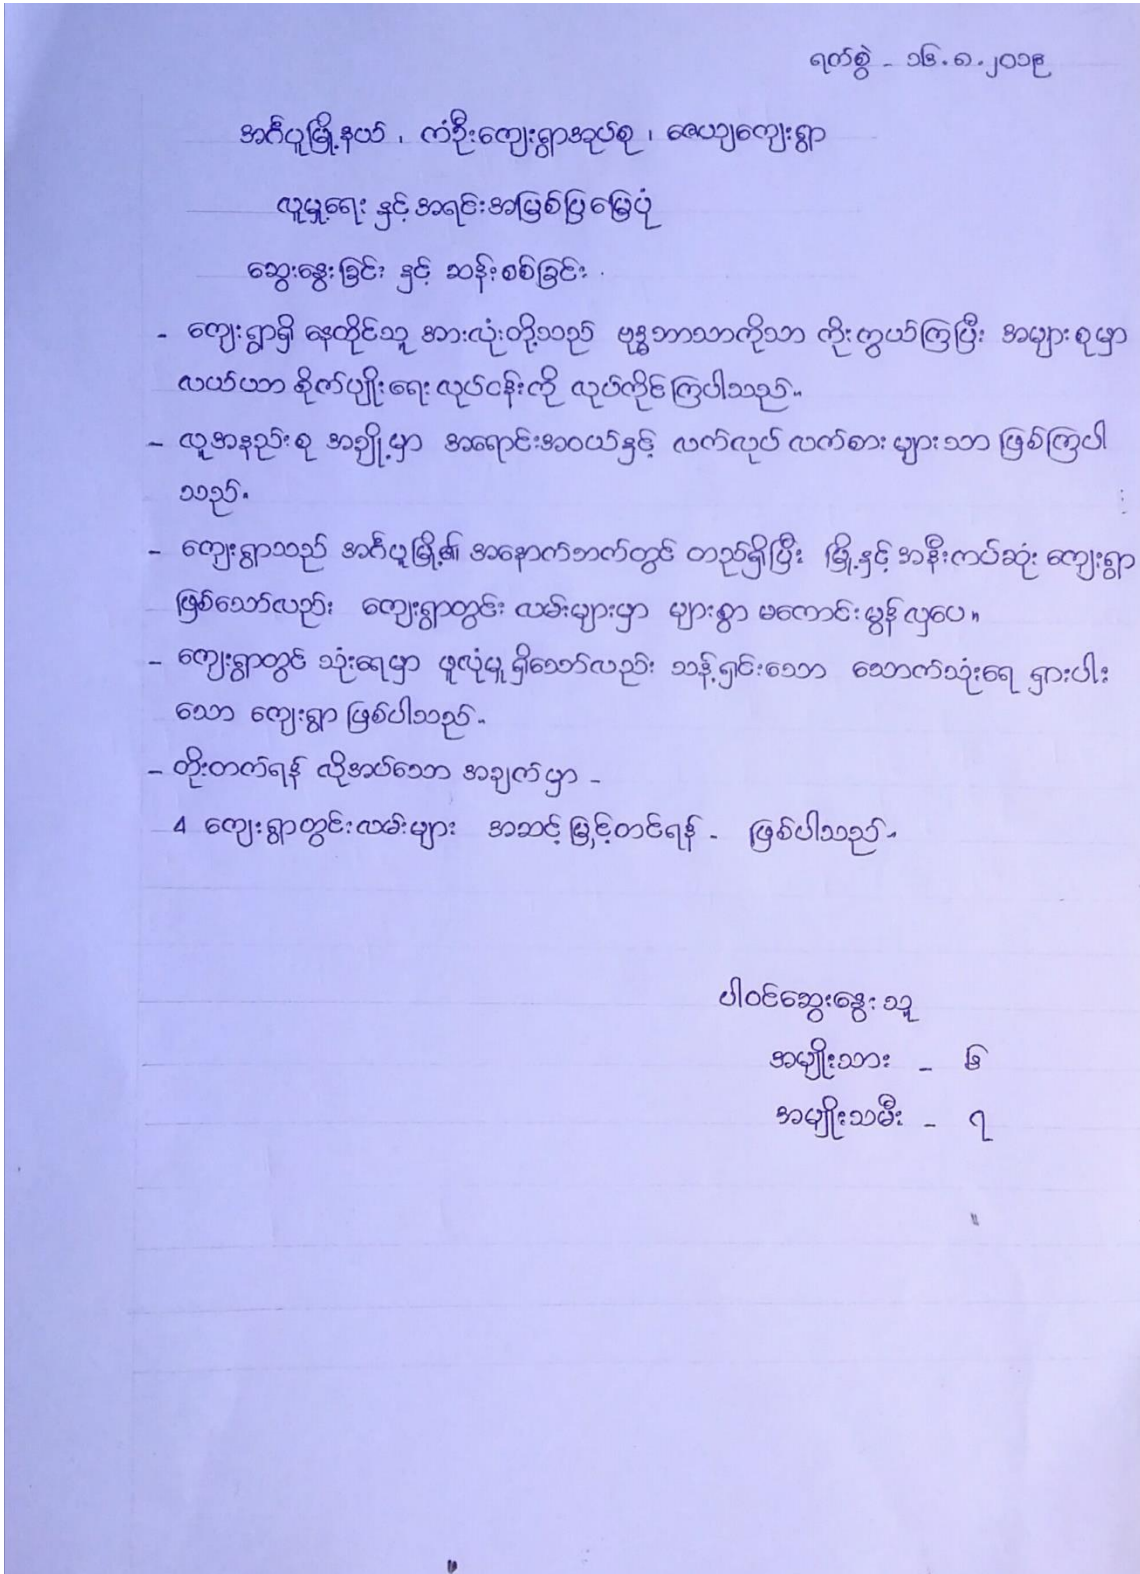 ရက်စွဲ - ၁၆.၈.၂၀၁၉
အင်္ဂပူမြို့နယ် ၊ ကံဦးကျေးရွာအုပ်စု ၊ ဇေယျကျေးရွာ
လူမှု့ရေး နှင့် အရင်းအမြစ်ပြ မြေပုံ
ဆွေးနွေးခြင်း နှင့် ဆန်းစစ်ခြင်း .
- ကျေးရွာရှိ နေထိုင်သူ အားလုံးတို့သည် ဗုဒ္ဓဘာသာကိုသာ ကိုးကွယ်ကြပြီး အများစုမှာ
လယ်ယာ စိုက်ပျိုးရေး လုပ်ငန်းကို လုပ်ကိုင်ကြပါသည်။
- လူအနည်းစု အချို့မှာ အရောင်းအဝယ်နှင့် လက်လုပ် လက်စား များသာ ဖြစ်ကြပါ
သည်။
- ကျေးရွာသည် အင်္ဂပူမြို့၏ အနောက်ဘက်တွင် တည်ရှိပြီး မြို့နှင့် အနီးကပ်ဆုံး ကျေးရွာ
ဖြစ်သော်လည်း ကျေးရွာတွင်း လမ်းများမှာ များစွာ မကောင်းမွန်လှပေ။
- ကျေးရွာတွင် သုံးရေမှာ ဖူလုံမှု ရှိသော်လည်း သန့်ရှင်းသော သောက်သုံးရေ ရှားပါး
သော ကျေးရွာ ဖြစ်ပါသည်။
- တိုးတက်ရန် လိုအပ်သော အချက်မှာ -
4 ကျေးရွာတွင်းလမ်းများ အဆင့်မြှင့်တင်ရန် - ဖြစ်ပါသည်။
ပါဝင်ဆွေးနွေးသူ
အမျိုးသား - ၆
အမျိုးသမီး - ၇